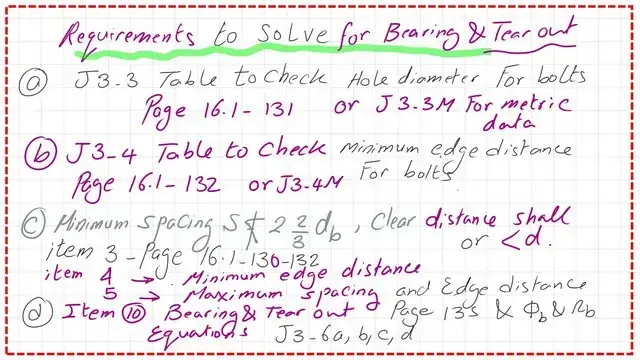 Requirements to Solve for Bearing & Tear out
(a) J3-3 Table to Check Hole diameter For bolts
Page 16.1-131 or J3-3M For metric
data
(b) J3-4 Table to Check Minimum edge distance
For bolts
Page 16.1-132 or J3-4M
(c) Minimum spacing S ≮ 2 2/3 db, Clear distance shall
or < d.
item 3 - Page 16.1-130-132
item 4 → Minimum edge distance
5 → Maximum spacing and Edge distance
(d) Item (10) Bearing & Tear out Page 135 & Φb & Rb
Equations J3-6a, b, c, d